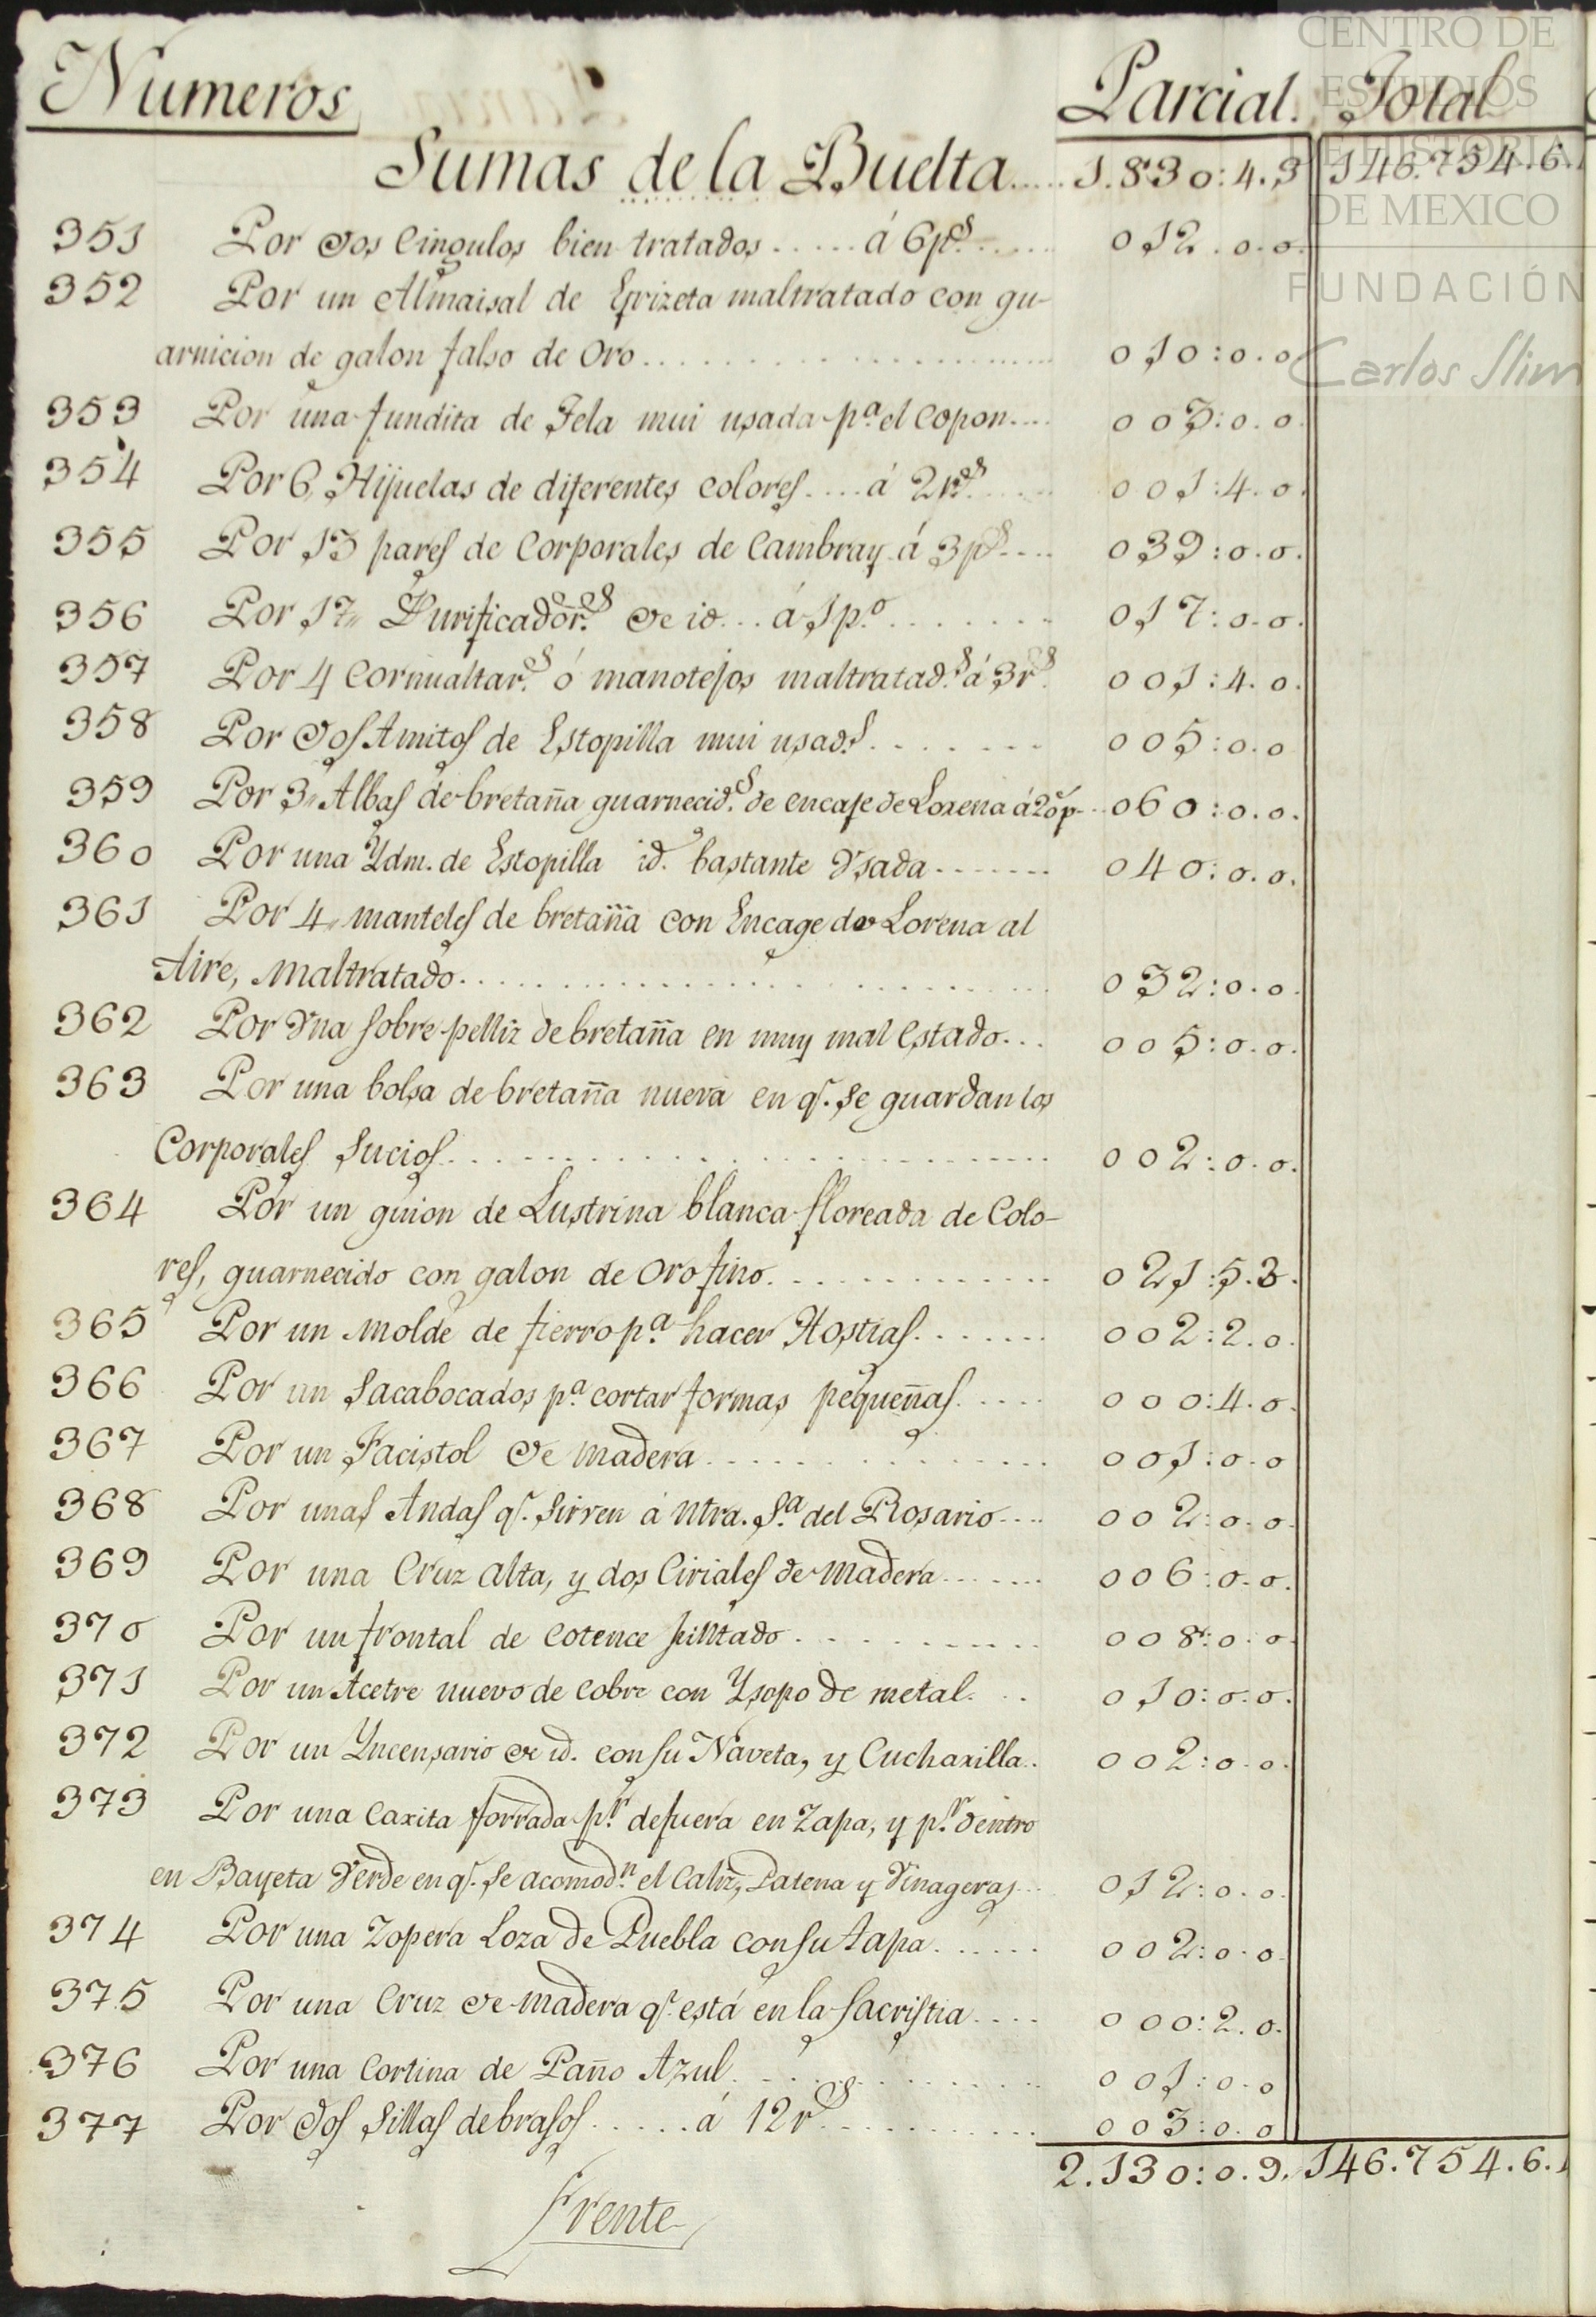 CENTRO DE
ESTUDIOS
DE HISTORIA
DE MEXICO
FUNDACIÓN
Carlos Slim
Numeros Parcial. Total
Sumas de la Buelta..... 1.830:4.3 146.754.6.1
351 Por dos Cingulos bien tratados ..... á 6 p.s ...... 012.0.0.
352 Por un Almaisal de Grizeta maltratado con gu-
arnicion de galon falso de Oro .................... 010:0.0
353 Por una fundita de Tela mui usada p.a el Copon.... 003:0.0.
354 Por 6, Hijuelas de diferentes colores .... á 2 r.s ...... 001:4.0.
355 Por 13 pares de Corporales de Cambray á 3 p.s .... 039:0.0.
356 Por 17,, Purificador.s de id... á 1 p.o ........ 017:0.0.
357 Por 4 Cornualtar.s ó manotejos maltratad.s á 3 r.s 001:4.0.
358 Por dos Amitos de Estopilla mui usad.s ....... 005:0.0
359 Por 3,, Albas de bretaña guarnecid.s de encaje de Lorena á 20 p.s .. 060:0.0.
360 Por una Ydm. de Estopilla id. bastante Vsada ....... 040:0.0.
361 Por 4,, manteles de bretaña con Encage de Lorena al
Aire, maltratado............................ 032:0.0.
362 Por Vna sobre-pelliz de bretaña en muy mal estado... 005:0.0.
363 Por una bolsa de bretaña nueva en q.e se guardan los
Corporales sucios........................... 002:0.0.
364 Por un guion de Lustrina blanca floreada de Colo-
res, guarnecido con galon de Oro fino............. 021:5.3.
365 Por un molde de fierro p.a hacer Hostias....... 002:2.0.
366 Por un Sacabocados p.a cortar formas pequeñas..... 000:4.0.
367 Por un Facistol de madera ................ 001:0.0
368 Por unas Andas q.e sirven á Ntra. S.a del Rosario.... 002:0.0.
369 Por una Cruz alta, y dos Ciriales de madera ...... 006:0.0.
370 Por un frontal de Cotence pintado ........... 008:0.0.
371 Por un Acetre nuevo de Cobre con Ysopo de metal... 010:0.0.
372 Por un Yncensario de id. con su Naveta, y Cucharilla.. 002:0.0.
373 Por una Caxita forrada p.r defuera en Zapa, y p.r dentro
en Bayeta Verde en q.e se acomod.n el Caliz, Patena y Vinageras... 012:0.0.
374 Por una Zopera Loza de Puebla con su tapa...... 002:0.0.
375 Por una Cruz de madera q.e está en la Sacristia.... 000:2.0.
376 Por una Cortina de Paño Azul.............. 001:0.0
377 Por dos Sillas de brasos ..... á 12 r.s ........... 003:0.0
2.130:0.9. 146.754.6.1
Frente